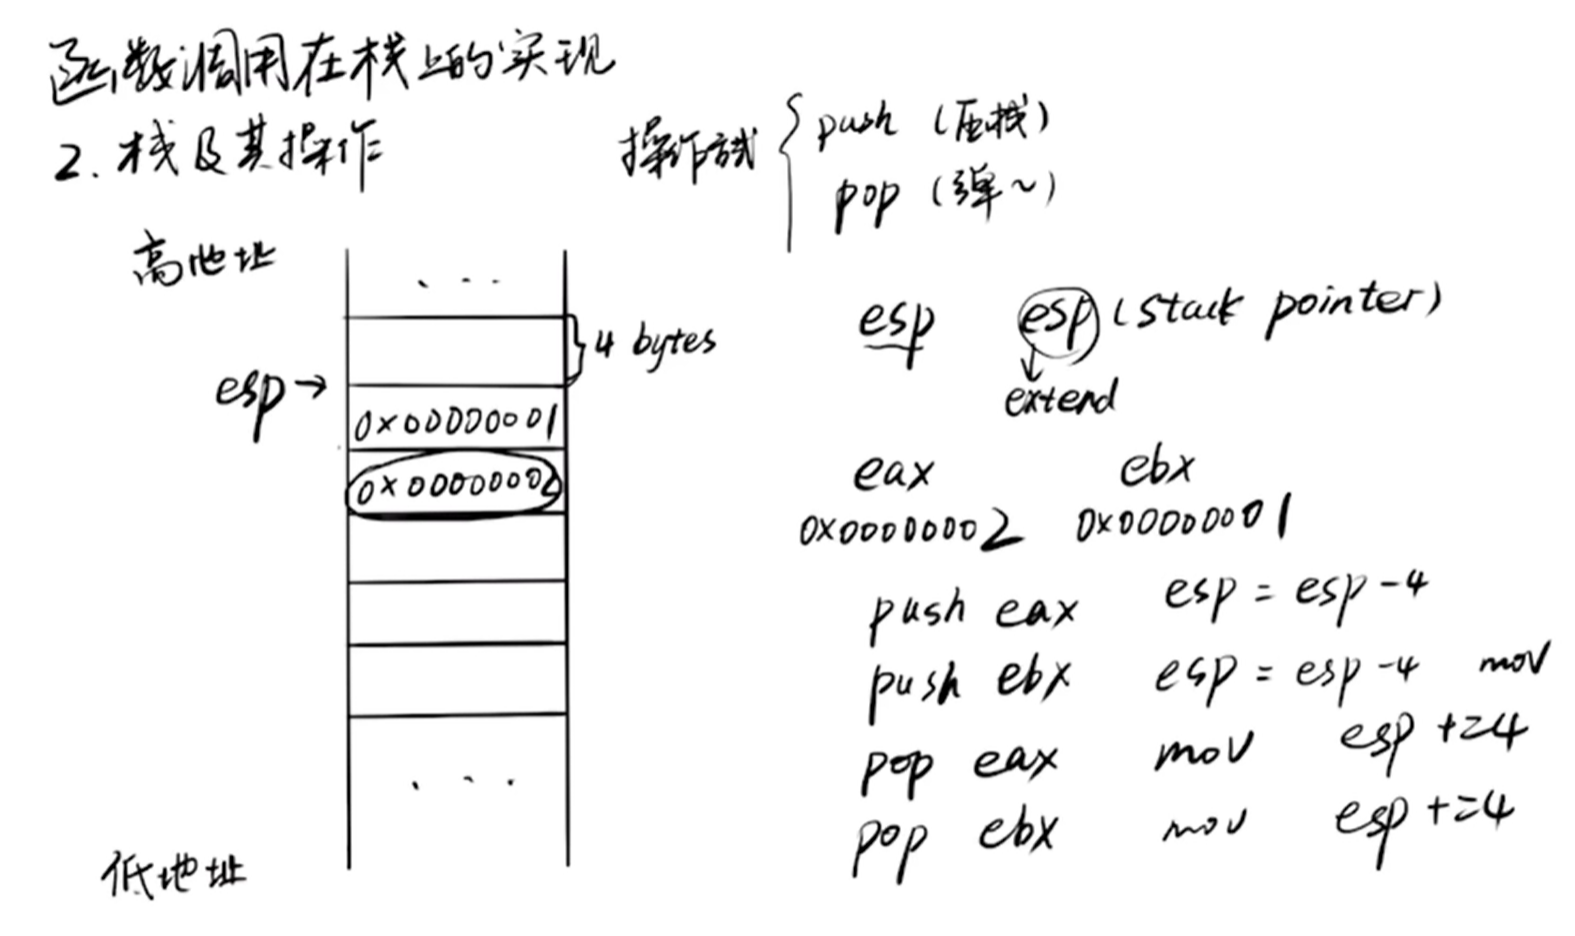 函数调用在栈上的实现
2. 栈及其操作
操作方式
push (压栈)
pop (弹~)
高地址
. . .
4 bytes
esp →
0x00000001
0x00000002
. . .
低地址
esp esp (stack pointer)
extend
eax ebx
0x00000002 0x00000001
push eax esp = esp - 4
push ebx esp = esp - 4 mov
pop eax mov esp += 4
pop ebx mov esp += 4